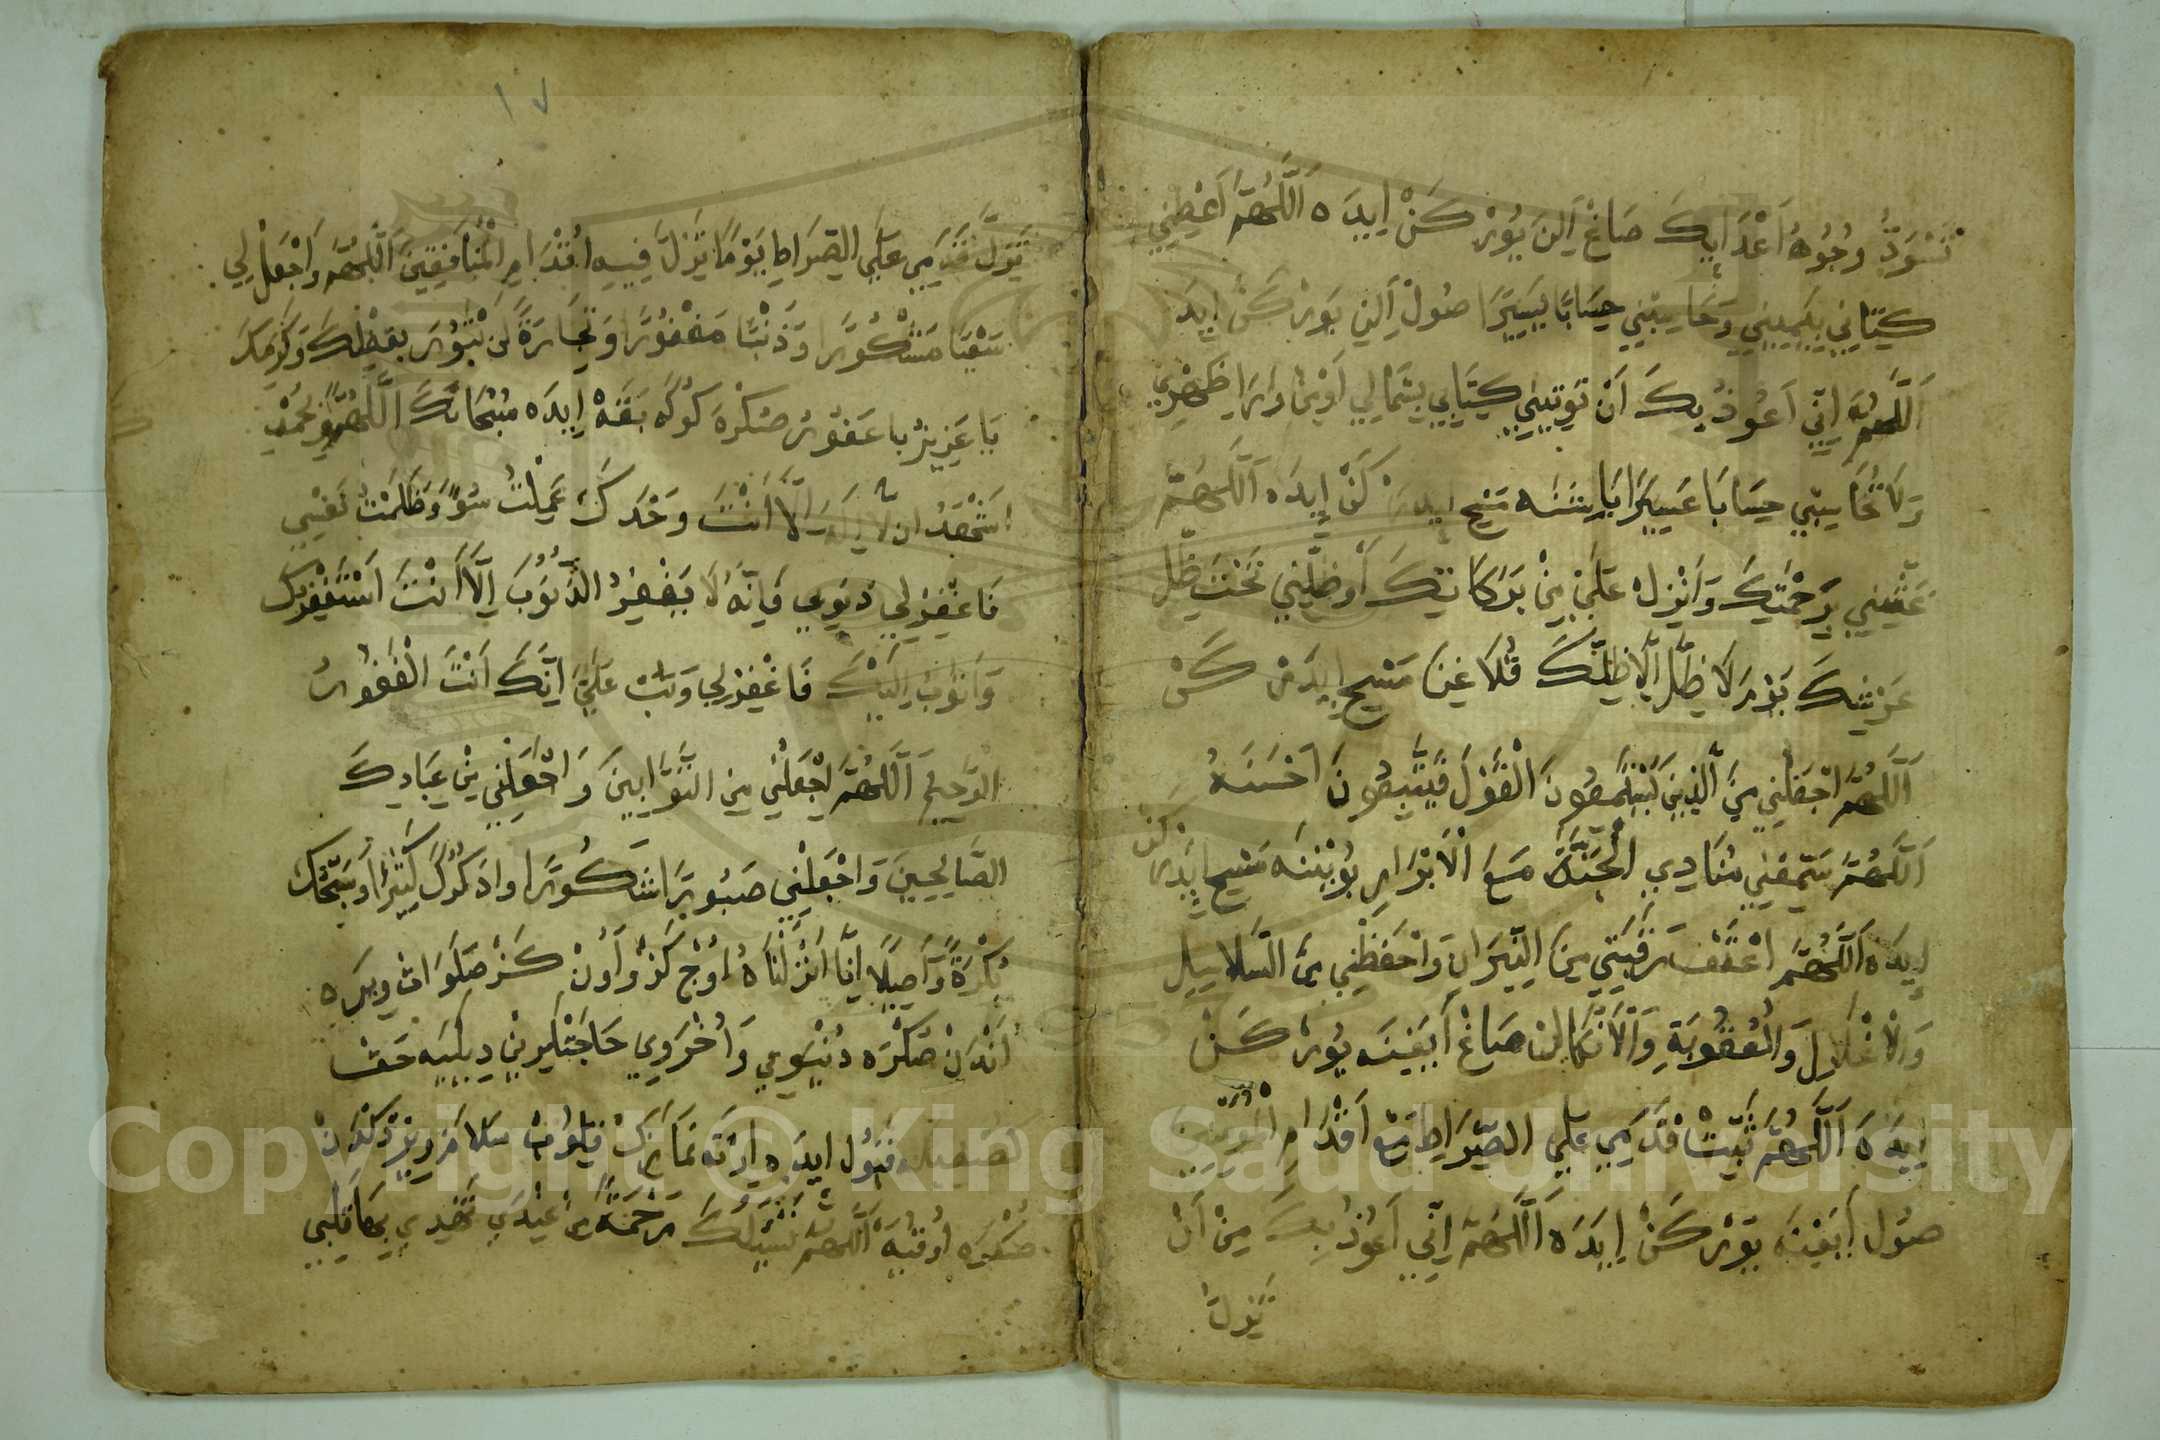 تَسْوَدُّ وُجُوهُ اَعْدَايِكَ صَاغْ اَلِنَ يُوُرْ كَنْ اِيدَه اَللَّهُمَّ اَعْطِنِي
كِتَابِي بِيَمِينِي وَحَاسِبْنِي حِسَابًا يَسِيرًا صُولْ اَلِنِ يَوُرْ كَنْ اِيدَ
اَللَّهُمَّ اِنِّي اَعُوذُ بِكَ اَنْ تُوتِيَنِي كِتَابِي بِشِمَالِي اَوْ مِنْ وَرَاءِ ظَهْرِي
وَلَا تُحَاسِبْنِي حِسَابًا عَسِيرًا بَاشِنَه مَسِح ايدر كَنْ اِيدَه اَللَّهُمَّ
غَشِّينِي بِرَحْمَتِكَ وَاَنْزِلْ عَلَيَّ مِنْ بَرَكَاتِكَ اَوْ ظَلِّنِي تَحْتَ ظِلِّ
عَرْشِكَ يَوْمَ لَا ظِلَّ اِلَّا ظِلُّكَ قُلَاغِنَ مَسِح اِيدَرْ كَنْ
اَللَّهُمَّ اجْعَلْنِي مِنَ الَّذِينَ يَسْتَمِعُونَ الْقَوْلَ فَيَتَّبِعُونَ اَحْسَنَهُ
اَللَّهُمَّ سَمِّعْنِي مُنَادِي الْجَنَّةِ مَعَ الْاَبْرَارِ بُوينِنَه مَسِح ايدر كن
اِيدَه اَللَّهُمَّ اعْتِقْ رَقَبَتِي مِنَ النِّيرَانِ وَاحْفَظْنِي مِنَ السَّلَاسِلِ
وَالْاَغْلَالِ وَالْعُقُوبَةِ وَالْاَنْكَالِ صَاغْ اَيَغِنَه يُوُرْ كَنْ
اِيدَه اَللَّهُمَّ ثَبِّتْ قَدَمِي عَلَي الصِّرَاطِ مَعَ اَقْدَامِ الْمُؤمِنِينَ
صُول اَيَغِنَه يَوُرْ كَنْ اِيدَه اَللَّهُمَّ اِنِّي اَعُوذُ بِكَ مِنْ اَنْ
تَزِلَّ
١٧
تَزِلَّ قَدَمِي عَلَي الصِّرَاطِ يَوْمًا تَزِلُّ فِيهِ اَقْدَامِ الْمُنَافِقِينَ اَللَّهُمَّ وَاجْعَلْ لِي
سَعْيًا مَشْكُورًا وَذَنْبًا مَغْفُورًا وَتِجَارَةً لَنْ تَبُورَ بِفَضْلِكَ وَكَرَمِكَ
يَا عَزِيزُ يا غَفُورُ صُكْرَه كُوكَه بَقَه اِيدَه سُبْحَانَكَ اَللَّهُمَّ وَبِحَمْدِ
اشْهَدُ ان لَّا اِلَهَ اِلَّا اَنْتَ وَحْدَكَ عَمِلْتُ سُوءً وَظَلَمْتُ نَفْسِي
فَاغْفِرْ لِي ذنُوبِي فَاِنَّهُ لَا يَغْفِرُ الذُّنُوبَ اِلَّا اَنْتَ اَسْتَغْفِرُكَ
وَاَتُوبُ اِلَيْكَ فَاغْفِرْ لِي وَتُبْ عَلَيَّ اِنَّكَ اَنْتَ الْغَفُورُ
الرَّحِيمُ اَللَّهُمَّ اجْعَلْنِي مِنَ التَّوَّابِينَ وَاجْعَلْنِي مِنْ عِبَادِكَ
الصَّالِحِينَ وَاجْعَلْنِي صَبُورًا شَكُورًا وَاذكُرُكَ كَثِيرًا وَاُسَبِّحُكَ
بُكْرَةً وَاَصِيلًا اِنَّا اَنْزَلْنَاهُ اوُجْ كَزْ وَاُونْ كَزْ صَلَوَات وِيرَه
اَنْدَنْ صُكْرَه دُنْيَوِي وَاُخْرَوِي حَاجَتْلَرِينْ دِيلِيَه حَقْ
قَبُول ايدَه سَلَام
صُكْرَه اُوقُيَه اَللَّهُمَّ اِنِّي اَسْئَلُكَ رَحْمَةً مِنْ عِنْدِكَ تَهْدِي بِهَا قَلْبِي
Copyright © King Saud University